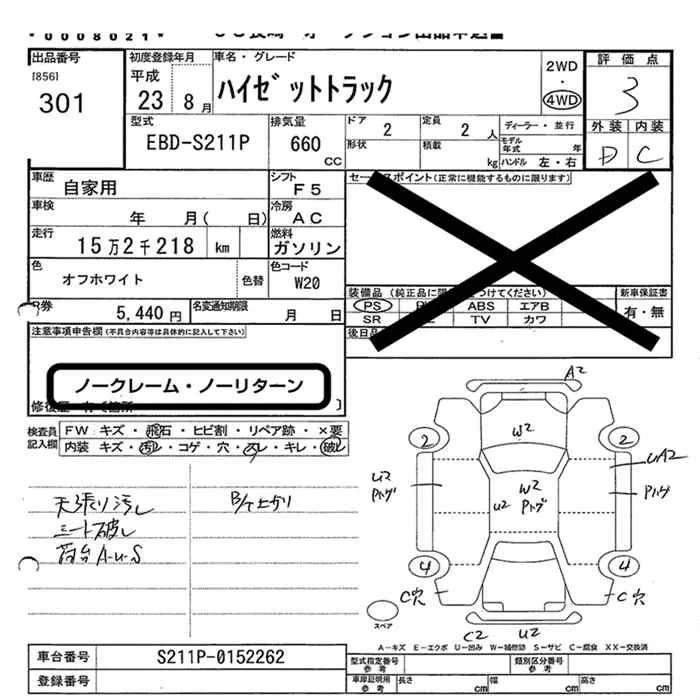 0008021
出品番号
[856]
301
初度登録年月
平成
23 8月
車名・グレード
ハイゼットトラック
2WD
・
4WD
評価点
3
外装 内装
D C
型式
EBD-S211P
排気量
660
CC
ドア
2
定員
2人
形状
積載
kg
ディーラー・並行
モデル年式 年
ハンドル 左・右
車歴
自家用
シフト
F5
セー スポイント(正常に機能するものに限ります)
車検
年 月( 日)
冷房
AC
走行
15万2千218 km
燃料
ガソリン
色
オフホワイト
色替
色コード
W20
装備品(純正品に限 つけてください)
新車保証書
有・無
PS
ABS
エアB
SR
TV
カワ
R券
5,440円
名変通知期限
月 日
後日品
注意事項申告欄(不具合内容等は具体的に記入して下さい)
ノークレーム・ノーリターン
検査員記入欄
FW キズ・飛石・ヒビ割・リペア跡・×要
内装 キズ・汚レ・コゲ・穴・スレ・キレ・破レ
天張り汚レ
シート破レ
荷台A-U-S
B/T上がり
A2
2
W2
2
UA2
U2
Pトゲ
W2
U2
Pトゲ
Pトゲ
4
4
C穴
C穴
C2
U2
スペア
A-キズ E-エクボ U-凹み W-補修跡 S-サビ C-腐食 XX-交換済
車台番号
S211P-0152262
登録番号
型式指定番号
参考
類別区分番号
参考
車庫証明用
参考
長さ cm
幅 cm
高さ cm